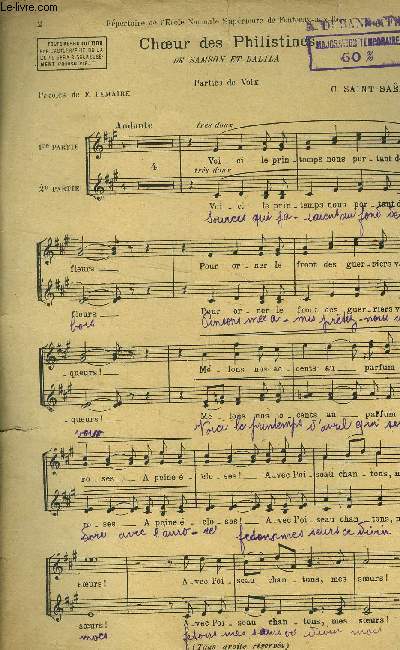 le-livre.com
2
Répertoire de l'Ecole Normale Supérieure de Fontenay-aux-Roses
Chœur des Philistines
DE SAMSON ET DALILA
MAJORATION TEMPORAIRE
60 %
Parties de Voix
Paroles de F. LEMAIRE
C. SAINT-SAË
Andante
très doux
1re PARTIE
4
Voi - ci le prin - temps nous por - tant d
très doux
2e PARTIE
Voi - ci le prin - temps nous por - tant d
Sources qui au fond de
fleurs
Pour or - ner le front des guer - riers v
fleurs
Pour or - ner le front des guer - riers v
bois
mes a - mis prêtez - nous
- queurs!
Mê - lons nos ac - cents au parfum
- queurs!
Mê - lons nos ac - cents au parfum
voix
Voici le printemps d'avril qui
ro - ses A peine é - clo - ses! A - vec l'oi - seau chan - tons, m
ro - ses A peine é - clo - ses! A - vec l'oi - seau chan - tons, m
avec l'auro - re! mes sœurs ce divin
sœurs! A - vec l'oi - seau chan - tons, mes sœurs!
sœurs! A - vec l'oi - seau chan - tons, mes sœurs!
mois mes sœurs ce divin mois
(Tous droits réservés)